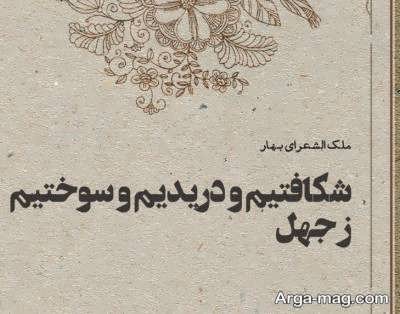 ملک الشعرای بهار
شکافتیم و دریدیم و سوختیم
ز جهل
Arga-mag.com